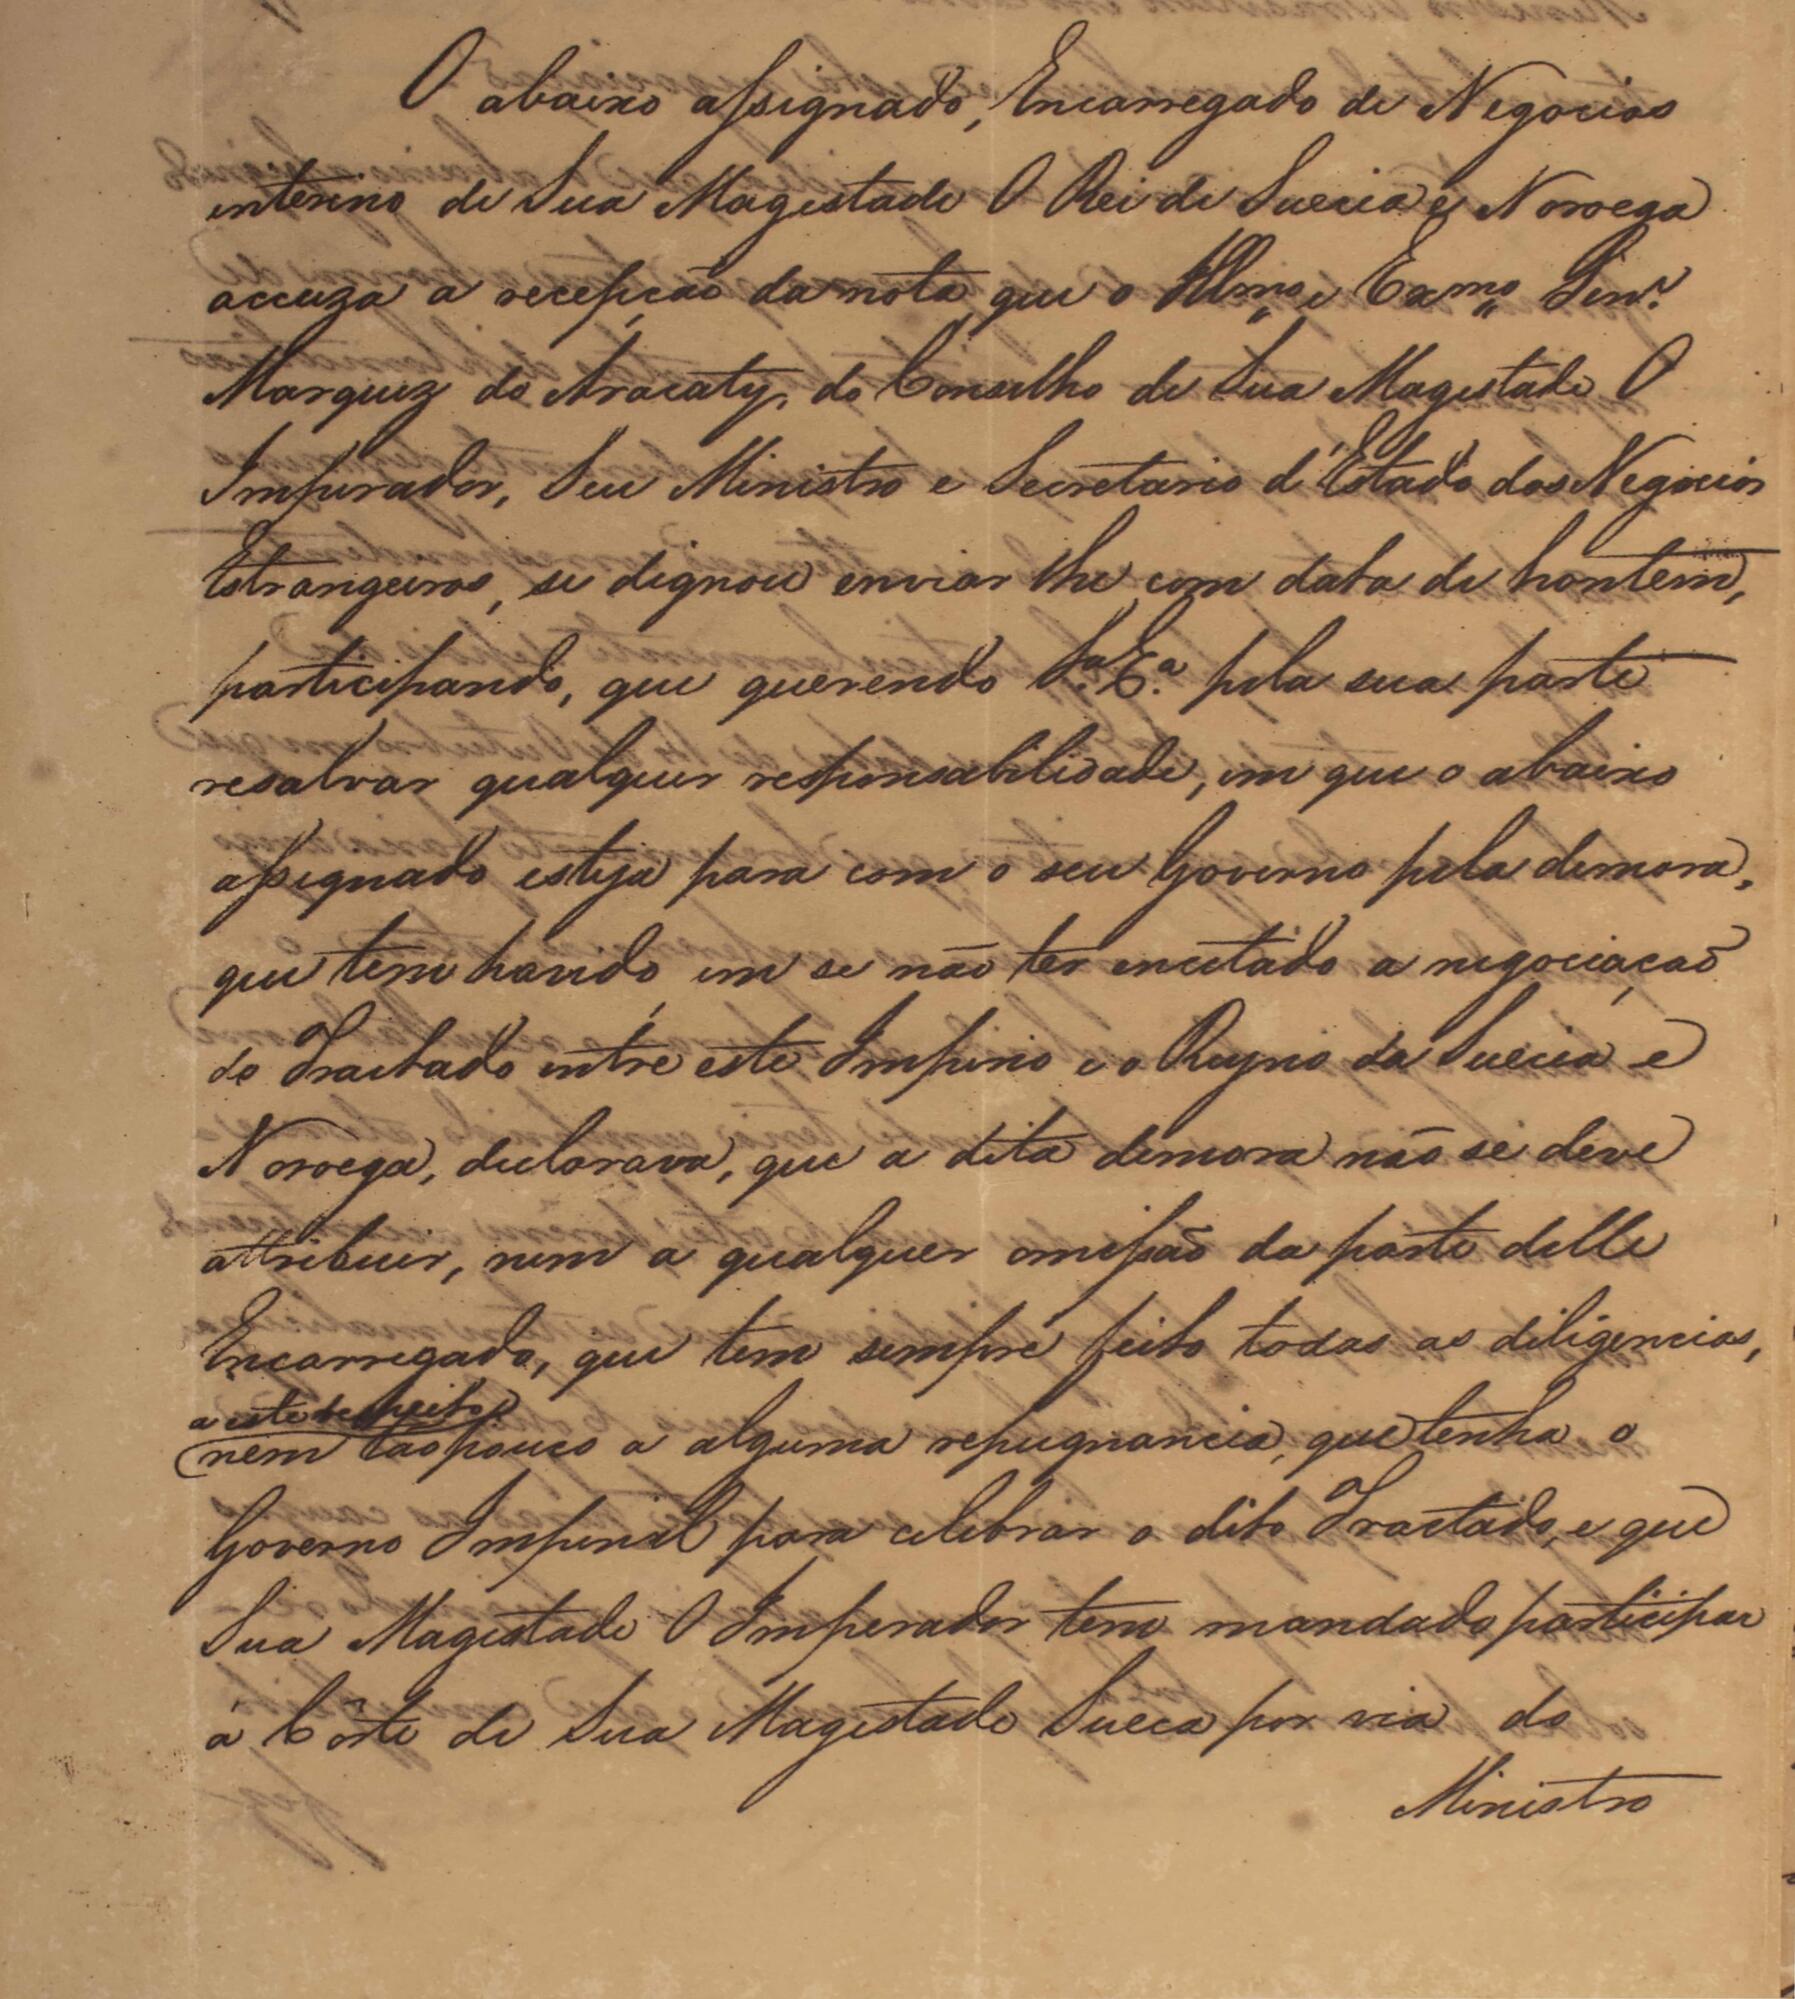 O abaixo assignado, Encarregado de Negocios
interino de Sua Magestade O Rei de Suecia e Noroega
accuza a recepção da nota que o Illmo. e Exmo. Senr.
Marquez do Aracaty, do Conselho de Sua Magestade O
Imperador, Seu Ministro e Secretario d'Estado dos Negocios
Estrangeiros, se dignou enviar lhe com data de hontem,
participando, que querendo Sa. Ea. pela sua parte
resalvar qualquer responsabilidade, em que o abaixo
assignado esteja para com o seu Governo pela demora,
que tem havido em se não ter encetado a negociação
do Tractado entre este Imperio e o Reyno da Suecia e
Noroega, declarava, que a dita demora não se deve
attribuir, nem a qualquer omissão da parte delle
Encarregado, que tem sempre feito todas as diligencias,
a este respeito
nem taopouco a alguma repugnancia, que tenha o
Governo Imperial para celebrar o dito Tractado, e que
Sua Magestade O Imperador tem mandado participar
á Côrte de Sua Magestade Sueca por via do
Ministro